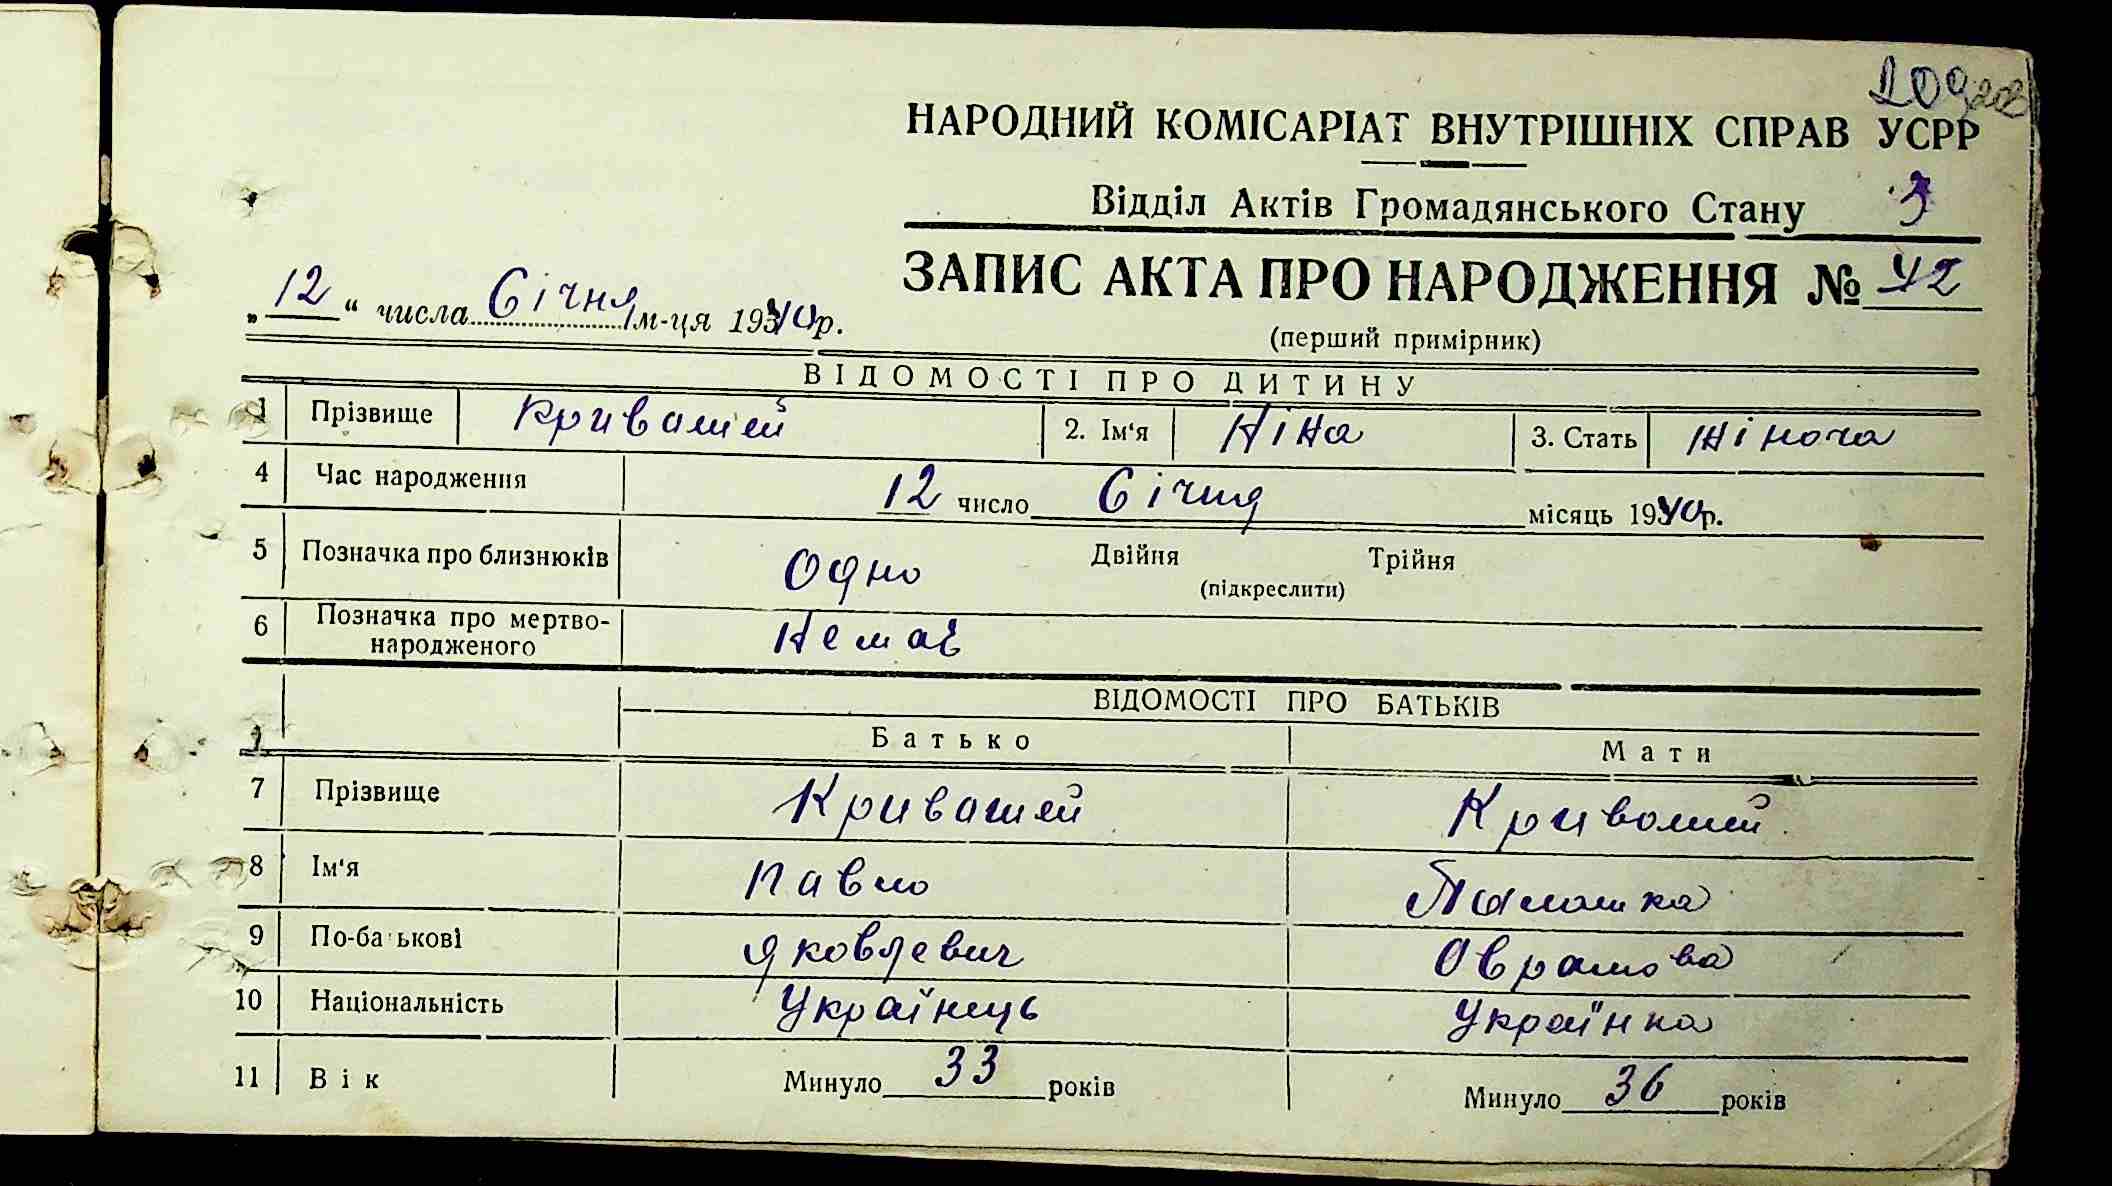 209 208
НАРОДНИЙ КОМІСАРІАТ ВНУТРІШНІХ СПРАВ УСРР
Відділ Актів Громадянського Стану 3
ЗАПИС АКТА ПРО НАРОДЖЕННЯ № 42
„12“ числа Січня м-ця 1940р.
(перший примірник)
ВІДОМОСТІ ПРО ДИТИНУ
1 Прізвище Кривошей 2. Ім'я Ніна 3. Стать Жіноча
4 Час народження 12 число Січня місяць 1940р.
5 Позначка про близнюків Одно Двійня Трійня
(підкреслити)
6 Позначка про мертво-
народженого Немає
ВІДОМОСТІ ПРО БАТЬКІВ
Батько Мати
7 Прізвище Кривошей Кривошей
8 Ім'я Павло
9 По-ба ькові Яковлевич Оврамова
10 Національність Українець Українка
11 Вік Минуло 33 років Минуло 36 років